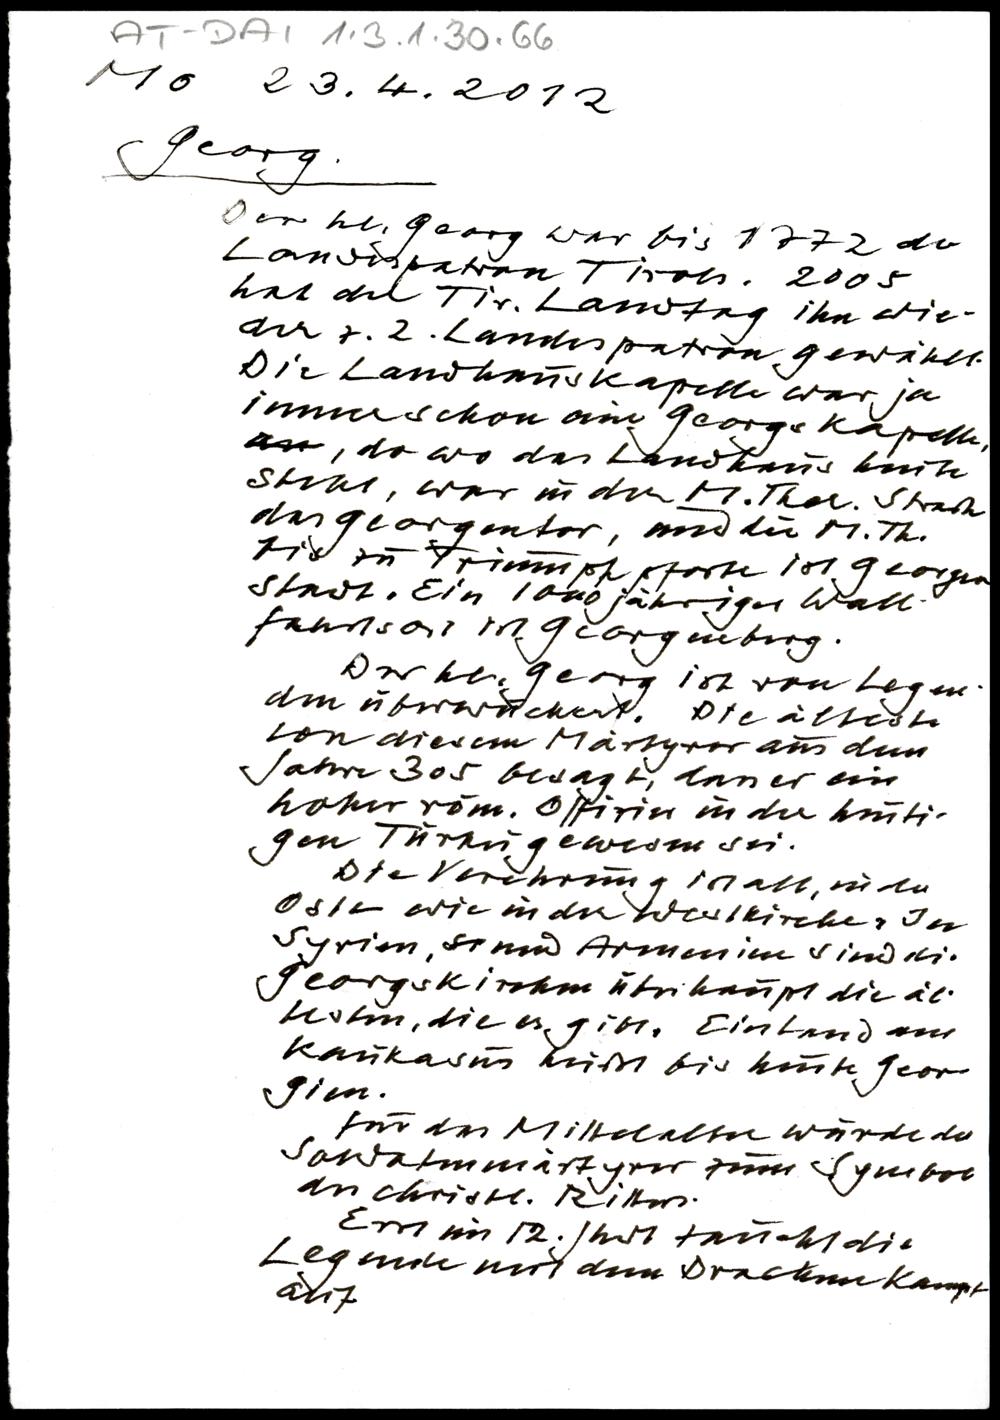 AT-DAI 1.3.1.30.66
Mo 23.4.2012
Georg.
Der hl. Georg war bis 1772 der
Landespatron Tirols. 2005
hat der Tir. Landtag ihn wie-
der z. 2. Landespatron gewählt.
Die Landhauskapelle war ja
immer schon eine Georgskapelle,
, do wo das Landhaus heute
steht, war in der M. Ther. Straße
das Georgentor, und die M. Th.
bis zu Triumphpforte ist Georgen
stadt. Ein 1000jähriger Wall-
fahrtsort ist Georgenberg.
Der hl. Georg ist von Legen-
den überwuchert. Die älteste
von diesem Märtyrer aus dem
Jahre 305 besagt, dass er ein
hoher röm. Offizier in der heuti-
gen Türkei gewesen sei.
Die Verehrung ist alt, in der
Ost- wie in der Westkirche. In
Syrien, und Armenien sind die
Georgskirchen überhaupt die äl-
testen, die es gibt. Ein Land am
Kaukasus heißt bis heute Geor-
gien.
Für das Mittelalter wurde der
Soldatenmärtyrer zum Symbol
des christl. Ritters.
Erst im 12. Jhdt taucht die
Legende mit dem Drachenkampf
auf